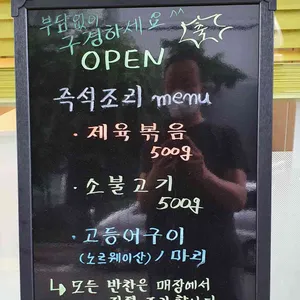 부담없이
구경하세요 ^^
OPEN
즉석조리 menu
· 제육볶음
500g
· 소불고기
500g
· 고등어구이
(노르웨이산) / 마리
↳ 모든 반찬은 매장에서